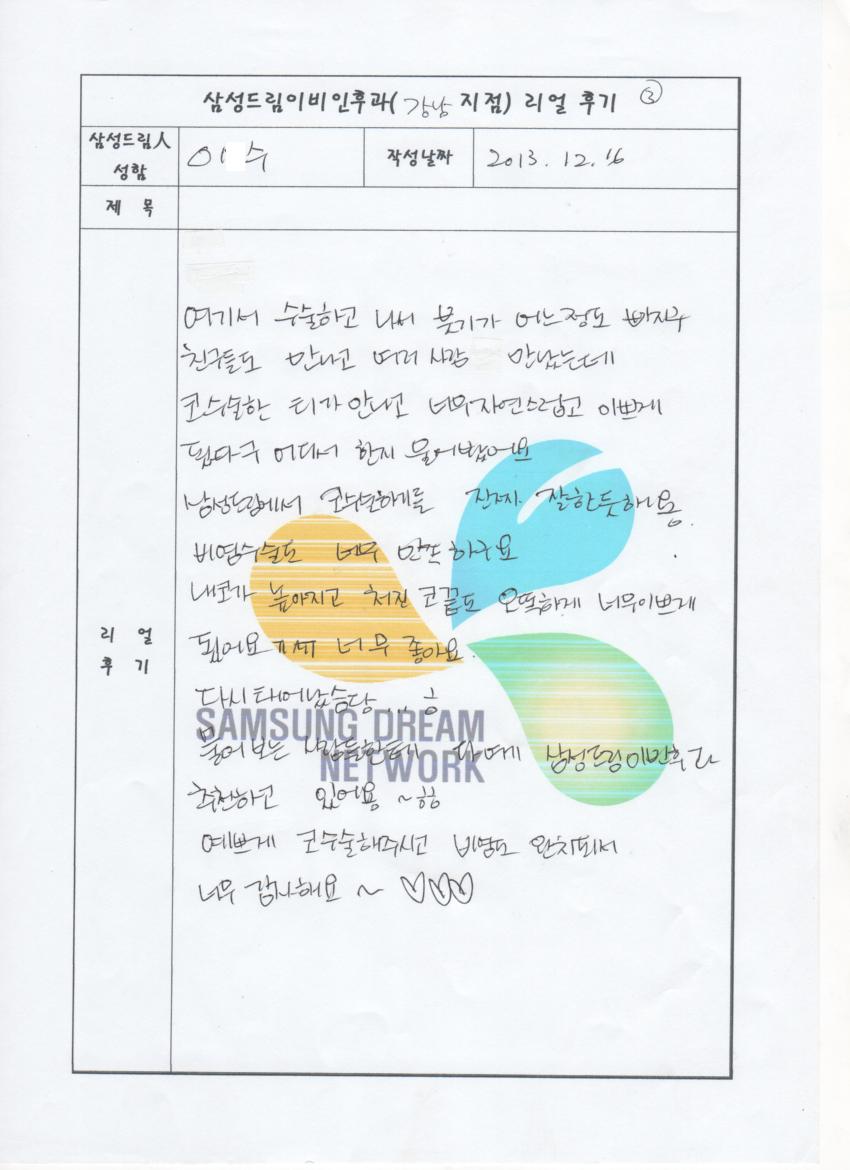 삼성드림이비인후과( 강남 지점) 리얼 후기 ③
삼성드림人 성함
이 수
작성날짜
2013. 12. 16
제 목
리 얼 후 기
여기서 수술하고 나서 붓기가 어느정도 빠지구
친구들도 만나고 여러 사람 만났는데
코수술한 티가 안나고 너무자연스럽고 이쁘게
됬다구 어디서 한지 물어봤어요
삼성드림에서 코수변하기를 진짜 잘한듯해용.
비염수술도 너무 만족하구요
내코가 높아지고 처진 코끝도 오똑하게 너무이쁘게
됬어요 너무 좋아요.
다시태어났슴당... ㅎ
SAMSUNG DREAM
NETWORK
물어보는 사람들한테 다 삼성드림이빈후과
추천하고 있어용 ~ㅎㅎ
예쁘게 코수술해주시고 비염도 완치되서
너무 감사해요 ~ ♡♡♡